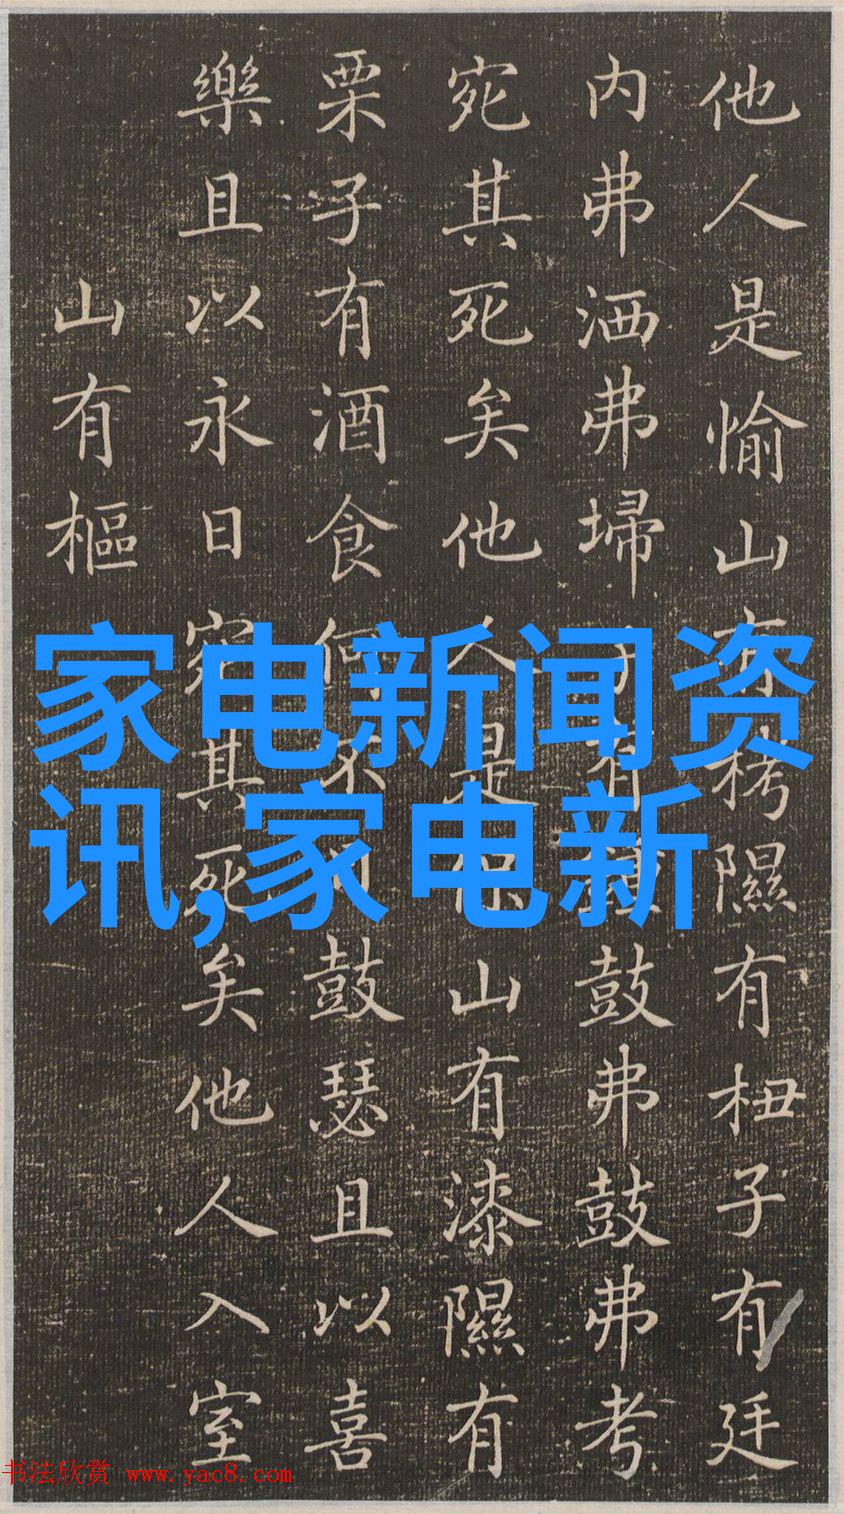 他人是愉山有栲隰有杻子有廷
内弗洒弗埽子有鍾鼓弗鼓弗考
宛其死矣他人是保山有漆隰有
栗子有酒食何不日鼓瑟且以喜
樂且以永日宛其死矣他人入室
山有樞
家电新闻资
讯,家电新
书法欣赏 www.yac8.com